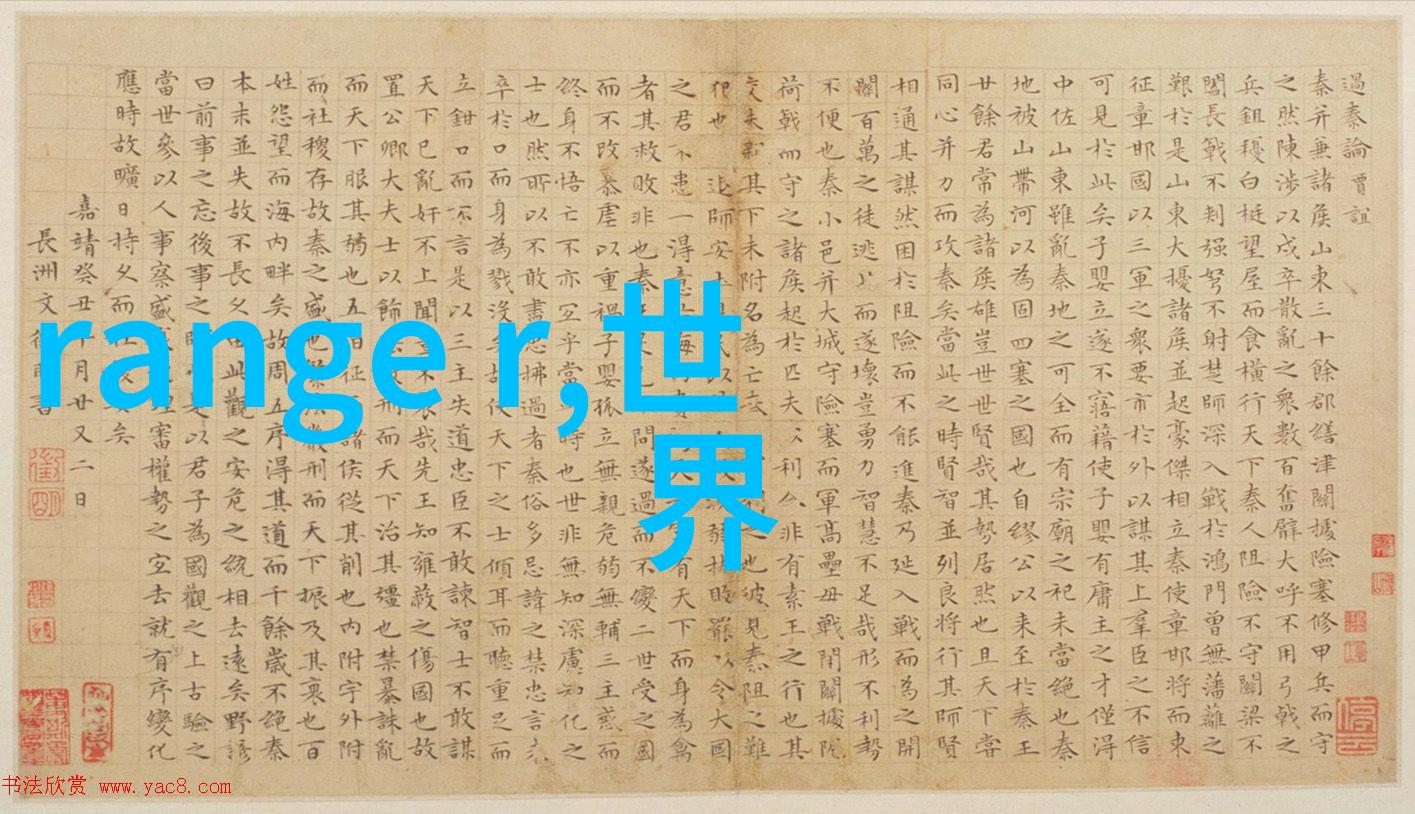 過秦論 賈誼
秦并兼諸矦山東三十餘郡繕津關據險塞修甲兵而守
之然陳涉以戍卒散亂之衆數百奮臂大呼不用弓戟之
兵鉏耰白梃望屋而食橫行天下秦人阻險不守關梁不
闔長戟不刺强弩不射楚師深入戰於鴻門曽無藩蘺之
艱於是山東大擾諸矦並起豪傑相立秦使章邯將而東
征章邯國以三軍之衆要市於外以謀其上羣臣之不信
可見於此矣子嬰立遂不寤藉使子嬰有庸主之才僅得
中佐山東雖亂秦地之可全而有宗廟之祀未當絶也秦
地被山帶河以為固四塞之國也自繆公以来至於秦王
廿餘君常為諸矦雄豈世世賢哉其勢居然也且天下嘗
同心并力而攻秦矣當此之時賢智並列良將行其師賢
相通其謀然困於阻險而不能進秦乃延入戰而為之開
關百萬之徒逃北而遂壞豈勇力智慧不足哉形不利勢
不便也秦小邑并大城守險塞而軍高壘毋戰閉關據阨
荷戟而守之諸矦起於匹夫以利合非有素王之行也其
交未親其下未附名為亡 利之也彼見秦阻之難
犯也 退師安土 弱扶罷以令大國
之君不患一得意 有天下而身為禽
者其救敗非也秦王 問遂過而不變二世受之因
而不改暴虐以重禍子嬰孤立無親危弱無輔三主惑而
終身不悟亡不亦宜乎當 時也世非無知深慮知化之
士也然所以不敢盡忠拂過者秦俗多忌諱之禁忠言未
卒於口而身為戮没矣故使天下之士傾耳而聽重足而
立鉗口而不言是以三主失道忠臣不敢諫智士不敢謀
天下已亂奸不上聞豈不哀哉先王知雍蔽之傷國也故
置公卿大夫士以飾 刑而天下治其彊也禁暴誅亂
而天下服其弱也五伯征而諸侯從其削也内附宇外附
而社稷存故秦之盛也繁法嚴刑而天下振及其衰也百
姓怨望而海内畔矣故周五序得其道而千餘歲不絶秦
本末並失故不長久由此觀之安危之統相去遠矣野諺
曰前事之忘後事之師 是以君子為國觀之上古驗之
當世參以人事察盛 理審權勢之宜去就有序變化
應時故曠日持久而社 矣
嘉靖癸丑十月廿又二日
長洲文徵明書
range r,世
界
书法欣赏 www.yac8.com